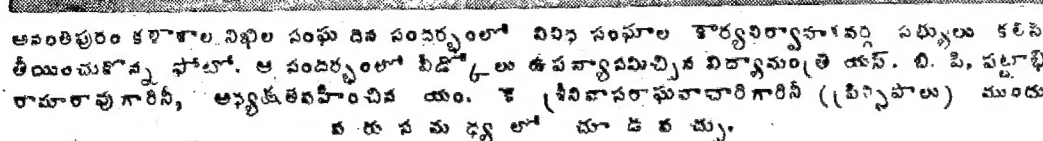 అనంతిపురం కళాశాల నిఖిల సంఘ దిన సందర్భంలో వివిధ సంఘాల కార్యనిర్వాహకవర్గ సభ్యులు కలిసి
తీయించుకొన్న ఫోటో. ఆ సందర్భంలో వీడ్కోలు ఉపన్యాసమిచ్చిన విద్యామంత్రి యస్. బి. పి. పట్టాభి
రామారావు గారినీ, అధ్యక్షతవహించిన యం. కె శ్రీనివాసరాఘవాచారిగారినీ (ప్రిన్సిపాలు) ముందు
వరుస మధ్యలో చూడవచ్చు.